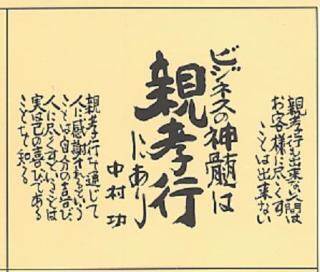 親孝行も出来ない間は
お客様に尽くす
ことは出来ない
ビジネスの神髄は
親孝行
にあり
中村功
親孝行を通じて
人に感謝されるという
ことは自分の喜び、
人に尽くすということは
実は己の喜びである
ことを知る